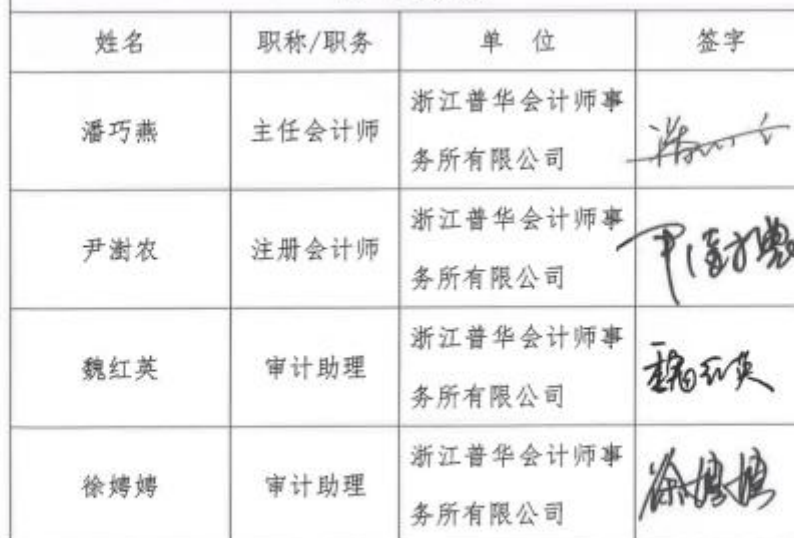 姓名 职称/职务 单 位 签字
潘巧燕 主任会计师 浙江普华会计师事
务所有限公司
尹澍农 注册会计师 浙江普华会计师事
务所有限公司 尹澍农
魏红英 审计助理 浙江普华会计师事
务所有限公司 魏红英
徐娉娉 审计助理 浙江普华会计师事
务所有限公司 徐娉娉